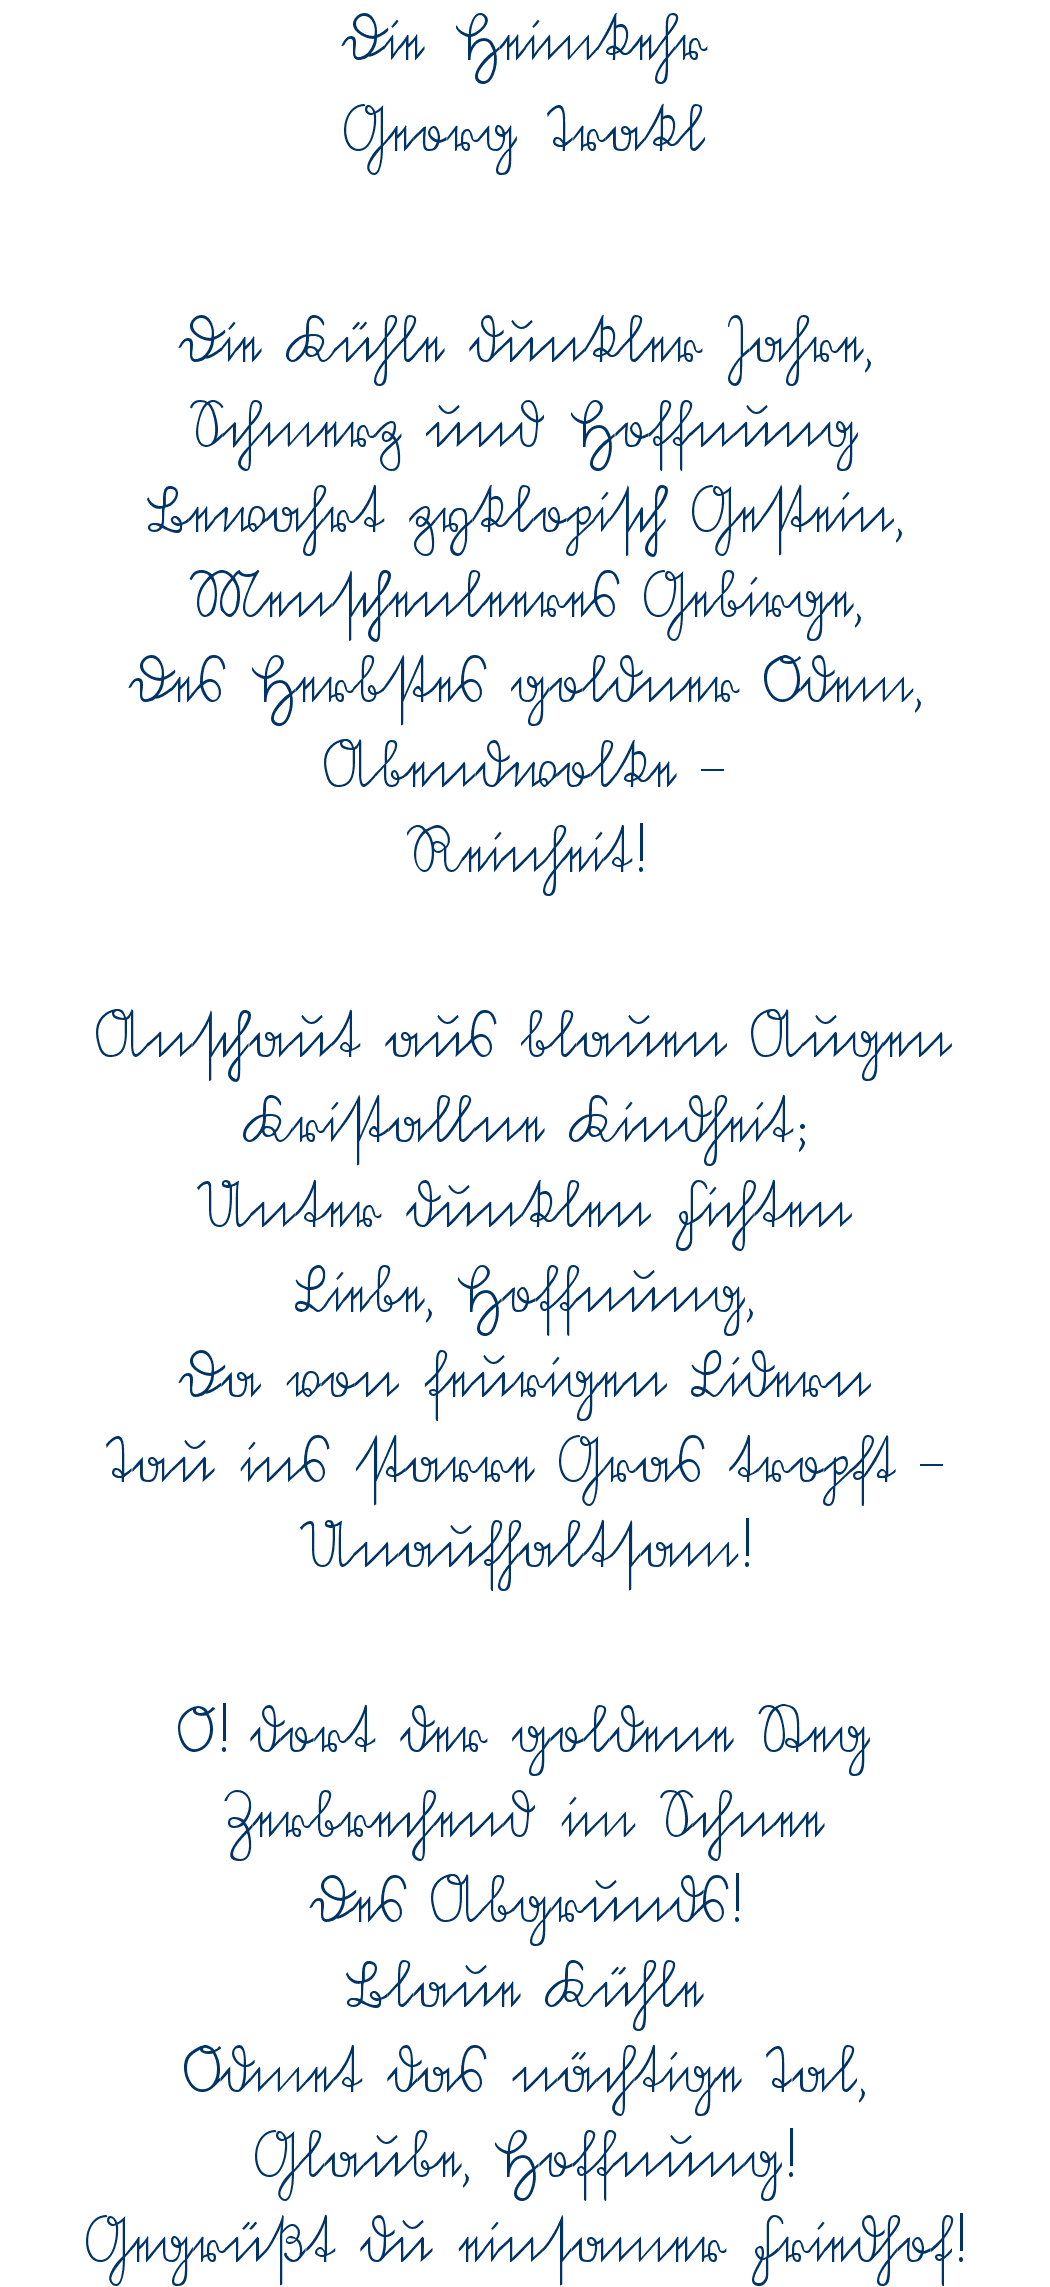 Die Heimkehr
Georg Trakl
Die Kühle dunkler Jahre,
Schmerz und Hoffnung
Bewahrt zyklopisch Gestein,
Menschenleeres Gebirge,
Des Herbstes goldner Odem,
Abendwolke –
Reinheit!
Anschaut aus blauen Augen
Kristallne Kindheit;
Unter dunklen Fichten
Liebe, Hoffnung,
Da von feurigen Lidern
Tau ins starre Gras tropft –
Unaufhaltsam!
O! dort der goldene Steg
Zerbrechend im Schnee
Des Abgrunds!
Blaue Kühle
Odmet das nächtige Tal,
Glaube, Hoffnung!
Gegrüßt du einsamer Friedhof!